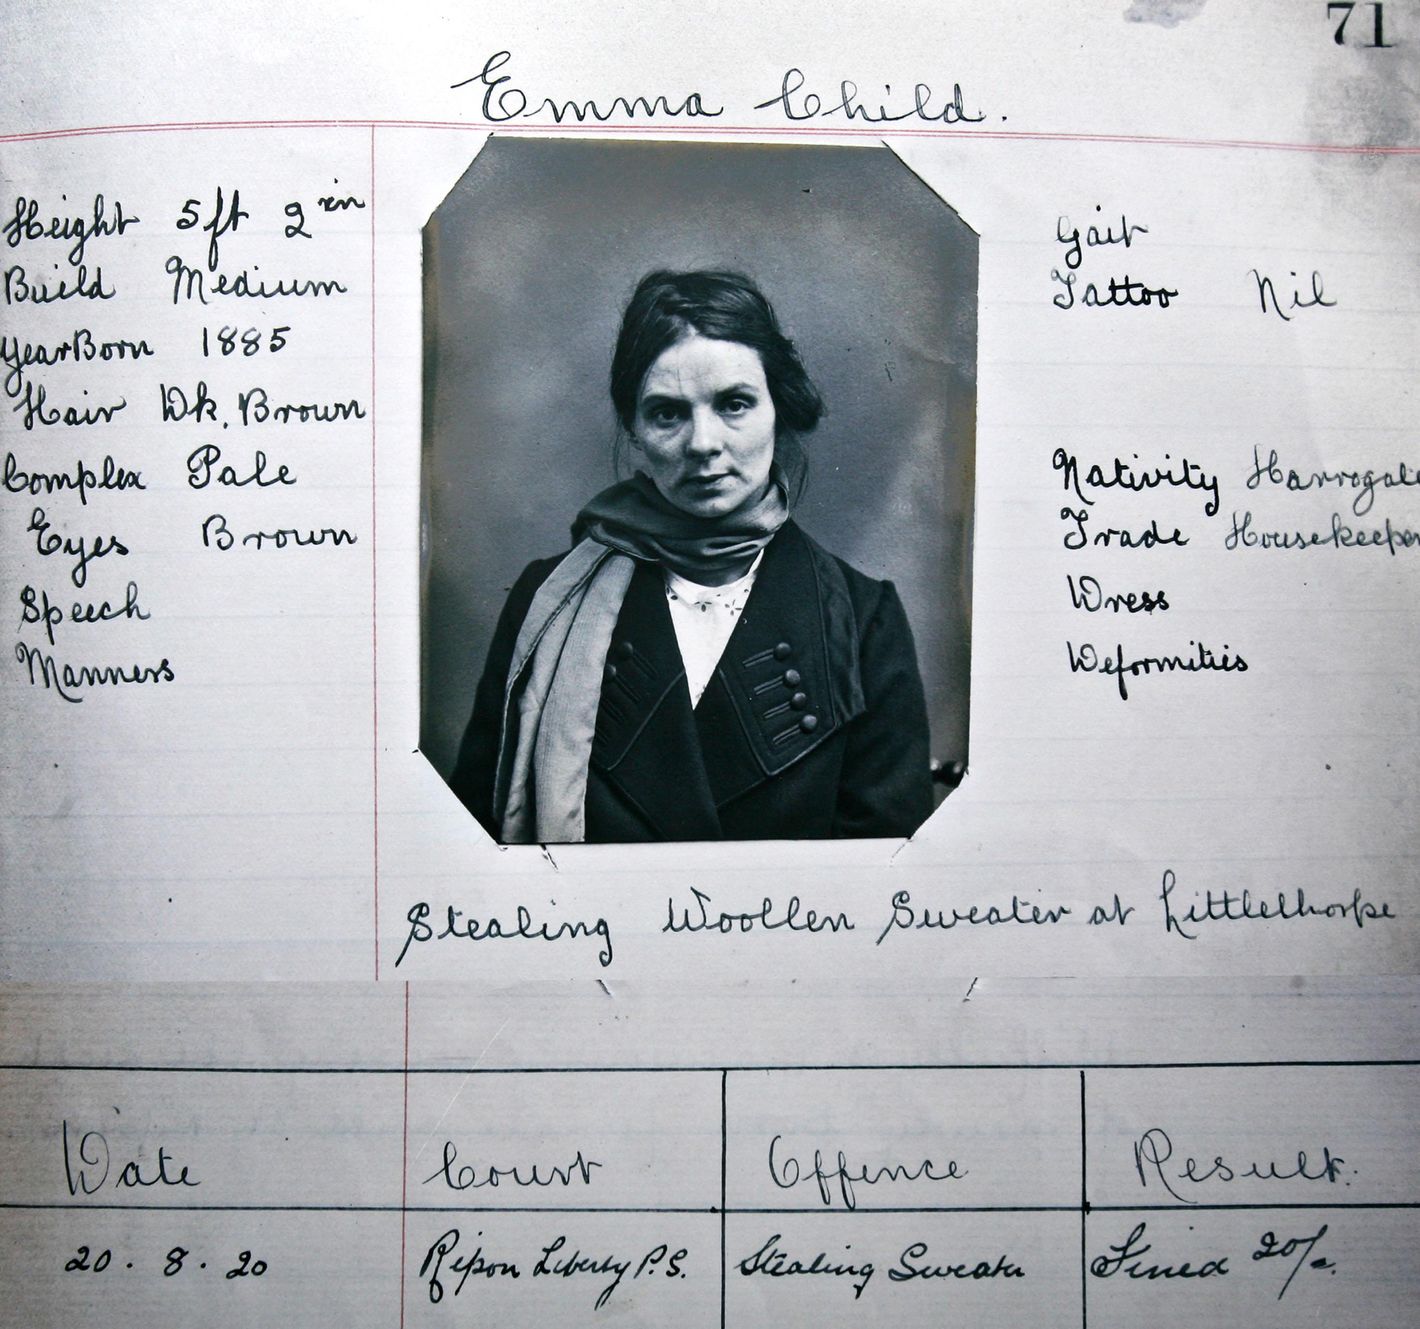 71
Emma Child.
Height 5ft 2 in
Build Medium
Year Born 1885
Hair Dk. Brown
Complex Pale
Eyes Brown
Speech
Manners
Gait
Tattoo Nil
Nativity Harrogate
Trade Housekeeper
Dress
Deformities
Stealing Woollen Sweater at Littlethorpe
Date Court Offence Result.
20. 8. 20 Ripon Liberty P.S. Stealing Sweater Fined 20/-.